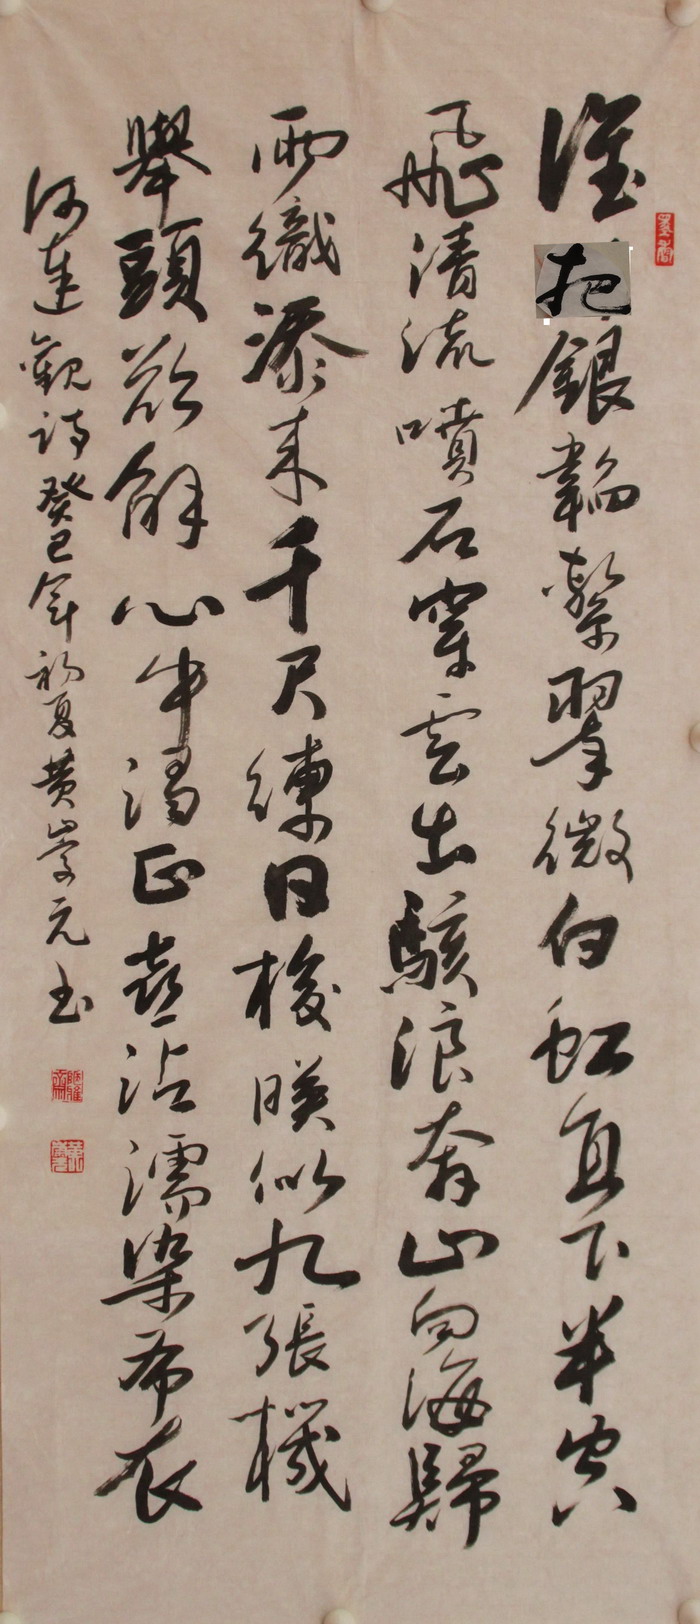 誰把銀韜繫翠微白虹直下半空
飛清流噴石穿雲出駭浪奔山向海歸
雨織添来千尺練日梭映似九張機
舉頭欲解心中渴正喜沾濡染布衣
何達觀詩癸巳年初夏黄崇元书